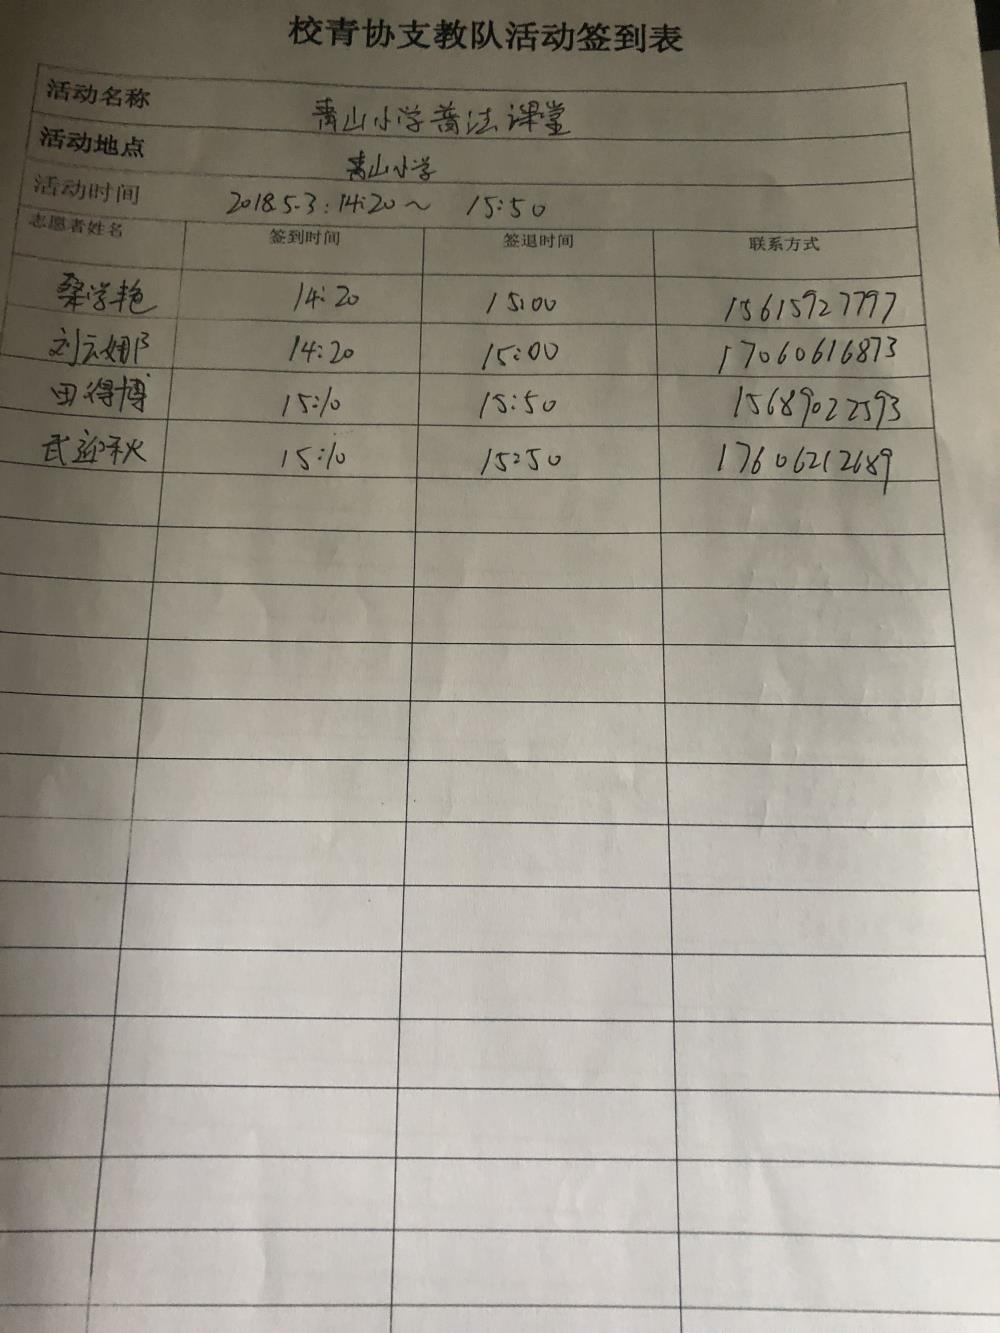 校青协支教队活动签到表
活动名称 青山小学普法课堂
活动地点 青山小学
活动时间 2018.5.3:14:20~ 15:50
志愿者姓名 签到时间 签退时间 联系方式
桑学艳 14:20 15:00 15615927797
刘云娜 14:20 15:00 17060616873
田得博 15:10 15:50 15689022593
武迎秋 15:10 15:50 17606212689